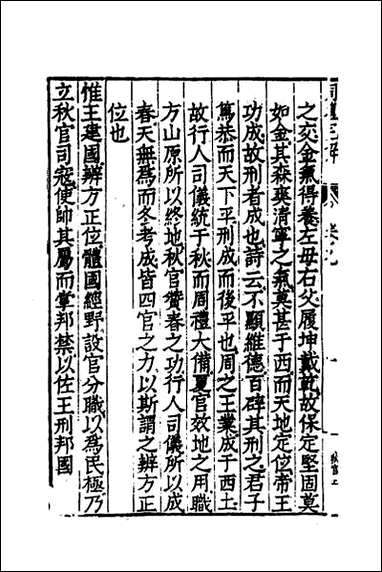 之交金氣得養左母右父履坤戴乾故保定堅固莫
如金其森爽清寧之氣莫甚于西而天地定位帝王
功成故刑者成也詩云不顯維德百辟其刑之君子
篤恭而天下平刑成而後平也周之王業成于西土
故行人司儀統于秋而周禮大備夏官效地之用職
方山原所以終地秋官贊春之功行人司儀所以成
春天無為而冬考成皆四官之力以斯謂之辨方正
位也
惟王建國辨方正位體國經野設官分職以為民極乃
立秋官司寇使帥其屬而掌邦禁以佐王刑邦國